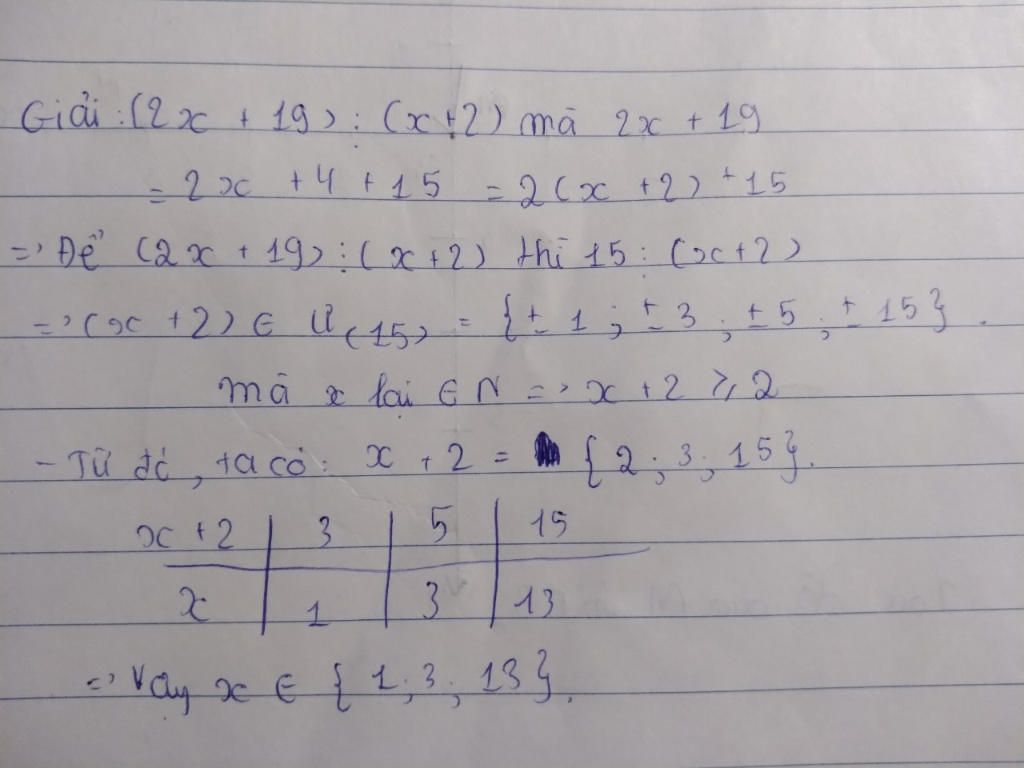 Giải : (2x + 19) ⋮ (x+2) mà 2x + 19
= 2x + 4 + 15 = 2(x + 2) + 15
=> Để (2x + 19) ⋮ (x+2) thì 15 ⋮ (x+2)
=> (x + 2) ∈ Ư(15) = {± 1 ; ± 3 ; ± 5 ; ± 15} .
mà x lại ∈ N => x + 2 ⩾ 2
- Từ đó , ta có : x + 2 = { 2 ; 3 ; 15}.
x + 2 | 3 | 5 | 15
x | 1 | 3 | 13
=> Vậy x ∈ { 1 ; 3 ; 13 }.